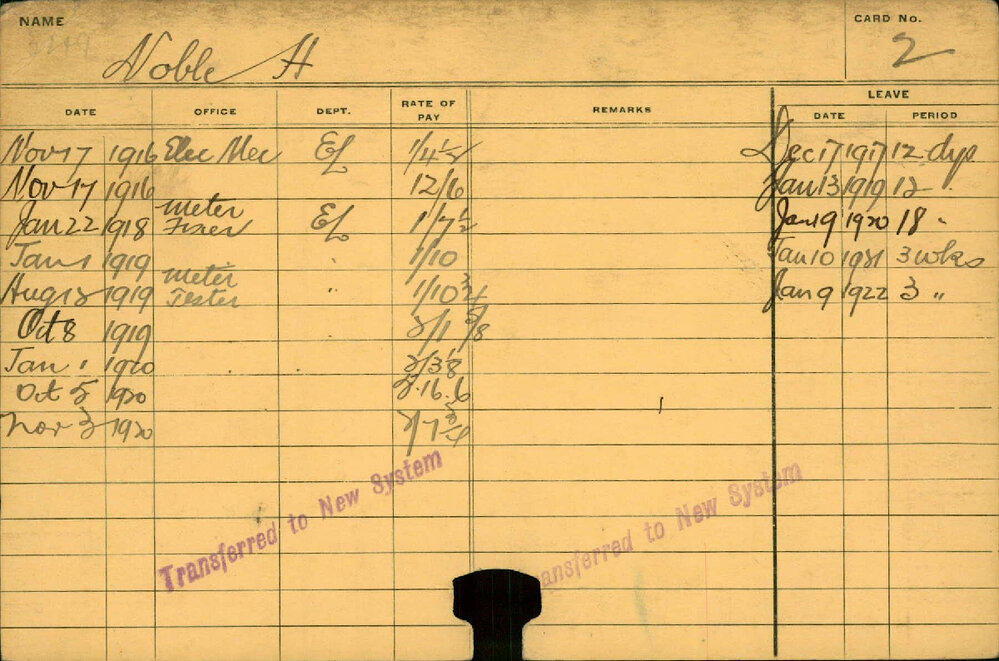 NAME
CARD No.
Noble H
2
DATE OFFICE DEPT. RATE OF PAY REMARKS LEAVE
DATE PERIOD
Nov 17 1916 Elec Mec EL 1/4 1/2 Dec 17 1917 12 dys
Nov 17 1916 12/6 Jan 13 1919 12 "
Jan 22 1918 meter Fixer EL 1/7 1/2 Jan 9 1920 18 "
Jan 1 1919 1/10 Jan 10 1921 3 wks
Aug 13 1919 meter Tester " 1/10 3/4 Jan 9 1922 3 "
Oct 8 1919 2/1 5/8
Jan 1 1920 2/3 1/8
Oct 5 1920 5.16.6
Nov 3 1920 2/7 3/4
Transferred to New System
ansferred to New System